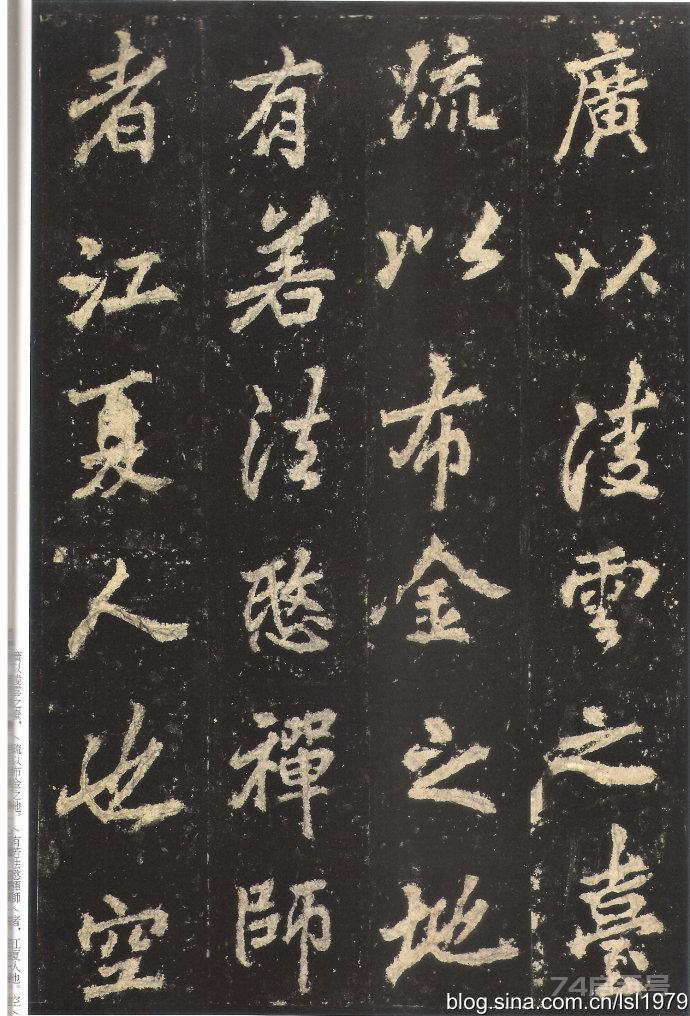 廣以凌雲之臺
疏以布金之地
有若法愍禪師
者江夏人也空
廣以凌雲之臺，疏以布金之地。有若法愍禪師者，江夏人也。空
blog.sina.com.cn/lsl1979